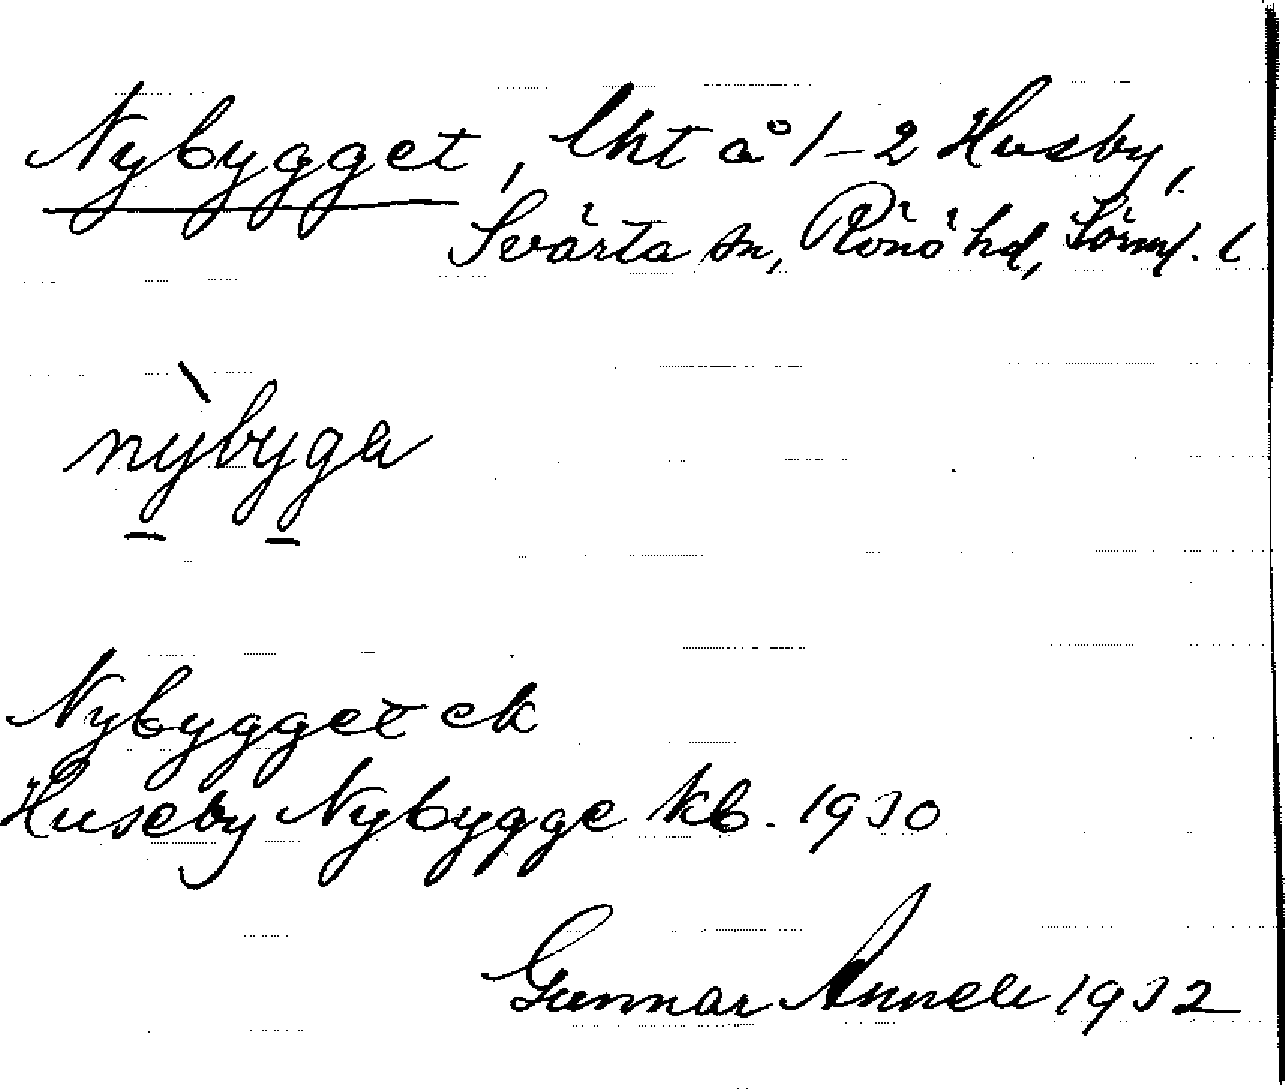 Nybygget, lht å 1-2 Husby,
Svärta sn, Rönö hd, Sörml. l
nỳbyga
Nybygget ek
Huseby Nybygge kb. 1930
Gunnar Annell 1932